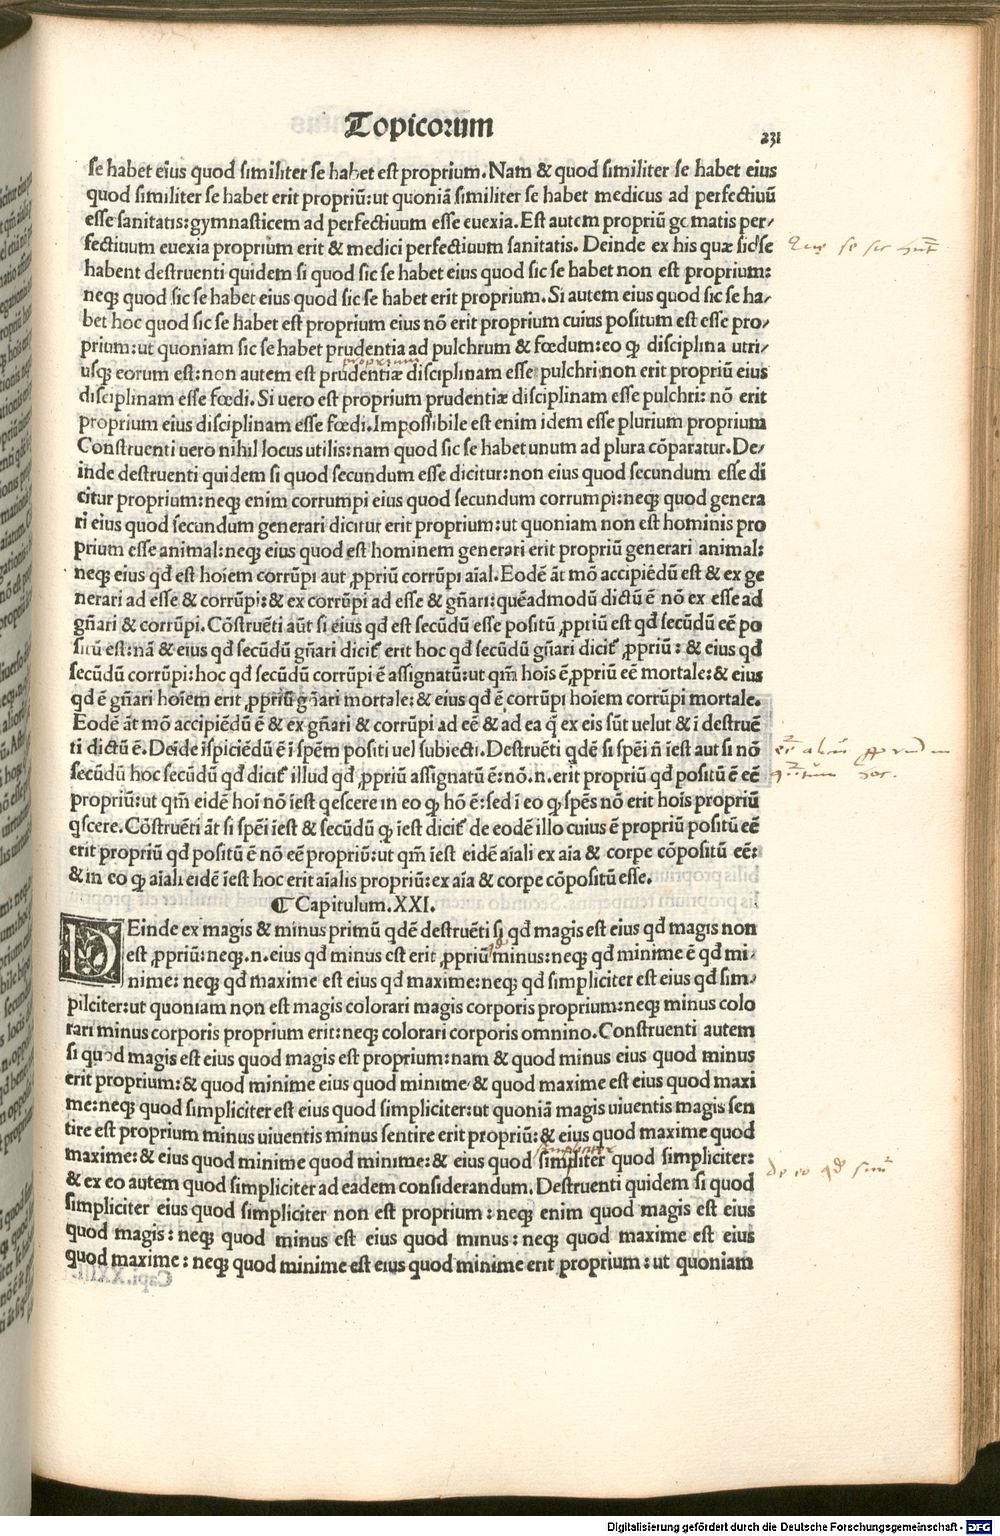 Topicorum
231
se habet eius quod similiter se habet est proprium. Nam & quod similiter se habet eius
quod similiter se habet erit propriū: ut quoniā similiter se habet medicus ad perfectiuū
esse sanitatis: gymnasticem ad perfectiuum esse euexia. Est autem propriū matis per-
fectiuum euexia proprium erit & medici perfectiuum sanitatis. Deinde ex his quæ sic se
habent destruenti quidem si quod sic se habet eius quod sic se habet non est proprium:
neqȝ quod sic se habet eius quod sic se habet erit proprium. Si autem eius quod sic se ha-
bet hoc quod sic se habet est proprium eius nō erit proprium cuius positum est esse pro-
prium: ut quoniam sic se habet prudentia ad pulchrum & fœdum: eo ꝙ disciplina utri-
proprium
usqȝ eorum est: non autem est prudentiæ disciplinam esse pulchri: non erit propriū eius
disciplinam esse fœdi. Si uero est proprium prudentiæ disciplinam esse pulchri: nō erit
proprium eius disciplinam esse fœdi. Impossibile est enim idem esse plurium proprium
Construenti uero nihil locus utilis: nam quod sic se habet unum ad plura cōparatur. De-
inde destruenti quidem si quod secundum esse dicitur: non eius quod secundum esse di
citur proprium: neqȝ enim corrumpi eius quod secundum corrumpi: neqȝ quod genera
ri eius quod secundum generari dicitur erit proprium: ut quoniam non est hominis pro
prium esse animal: neqȝ eius quod est hominem generari erit propriū generari animal:
neqȝ eius qđ est hoiem corrūpi aut ꝓpriū corrūpi aīal. Eodē āt mō accipiēdū est & ex ge
nerari ad esse & corrūpi: & ex corrūpi ad esse & gñari: quēadmodū dictū ē nō ex esse ad
gñari & corrūpi. Cōstruēti aūt si eius qđ est secūdū esse positū ꝓpriū est qđ secūdū eē po
situ est: nā & eius qđ secūdū gñari dicit̃ erit hoc qđ secūdū gñari dicit̃ ꝓpriū: & eius qđ
secūdū corrūpi: hoc qđ secūdū corrūpi ē assignatū: ut qm̄ hois ē ꝓpriū eē mortale: & eius
qđ ē gñari hoiem erit ꝓpriū gñari mortale: & eius qđ ē corrūpi hoiem corrūpi mortale.
Eodē āt mō accipiēdū ē & ex gñari & corrūpi ad eē & ad ea q̄ ex eis sūt uelut & ī destruē
ti dictū ē. Deīde īspiciēdū ē ī spēm positi uel subiecti. Destruēti qdē si spēi n̄ īest aut si nō
secūdū hoc secūdū qđ dicit̃ illud qđ ꝓpriū assignatū ē: nō.n. erit propriū qđ positū ē eē
propriū: ut qm̄ eidē hoī nō īest qescere in eo ꝙ hō ē: sed ī eo ꝙ spēs nō erit hois propriū
qscere. Cōstruēti āt si spēi īest & secūdū ꝙ īest dicit̃ de eodē illo cuius ē propriū positū eē
erit propriū qđ positū ē nō eē propriū: ut qm̄ īest eidē aīali ex aīa & corpe cōpositū eē:
& in eo ꝙ aīali eidē īest hoc erit aīalis propriū: ex aīa & corpe cōpositū esse.
¶ Capitulum. XXI.
DEinde ex magis & minus primū qdē destruēti si qđ magis est eius qđ magis non
est ꝓpriū: neqȝ.n. eius qđ minus est erit ꝓpriū minus: neqȝ qđ minime ē qđ mi-
nime: neqȝ qđ maxime est eius qđ maxime: neqȝ qđ simpliciter est eius qđ sim-
pliciter: ut quoniam non est magis colorari magis corporis proprium: neqȝ minus colo
rari minus corporis proprium erit: neqȝ colorari corporis omnino. Construenti autem
si quod magis est eius quod magis est proprium: nam & quod minus eius quod minus
erit proprium: & quod minime eius quod minime & quod maxime est eius quod maxi
me: neqȝ quod simpliciter est eius quod simpliciter: ut quoniā magis uiuentis magis sen
tire est proprium minus uiuentis minus sentire erit propriū: & eius quod maxime quod
simpliciter
maxime: & eius quod minime quod minime: & eius quod simpliter quod simpliciter:
& ex eo autem quod simpliciter ad eadem considerandum. Destruenti quidem si quod
simpliciter eius quod simpliciter non est proprium: neqȝ enim quod magis est eius
quod magis: neqȝ quod minus est eius quod minus: neqȝ quod maxime est eius
quod maxime: neqȝ quod minime est eius quod minime erit proprium: ut quoniam
Digitalisierung gefördert durch die Deutsche Forschungsgemeinschaft - DFG